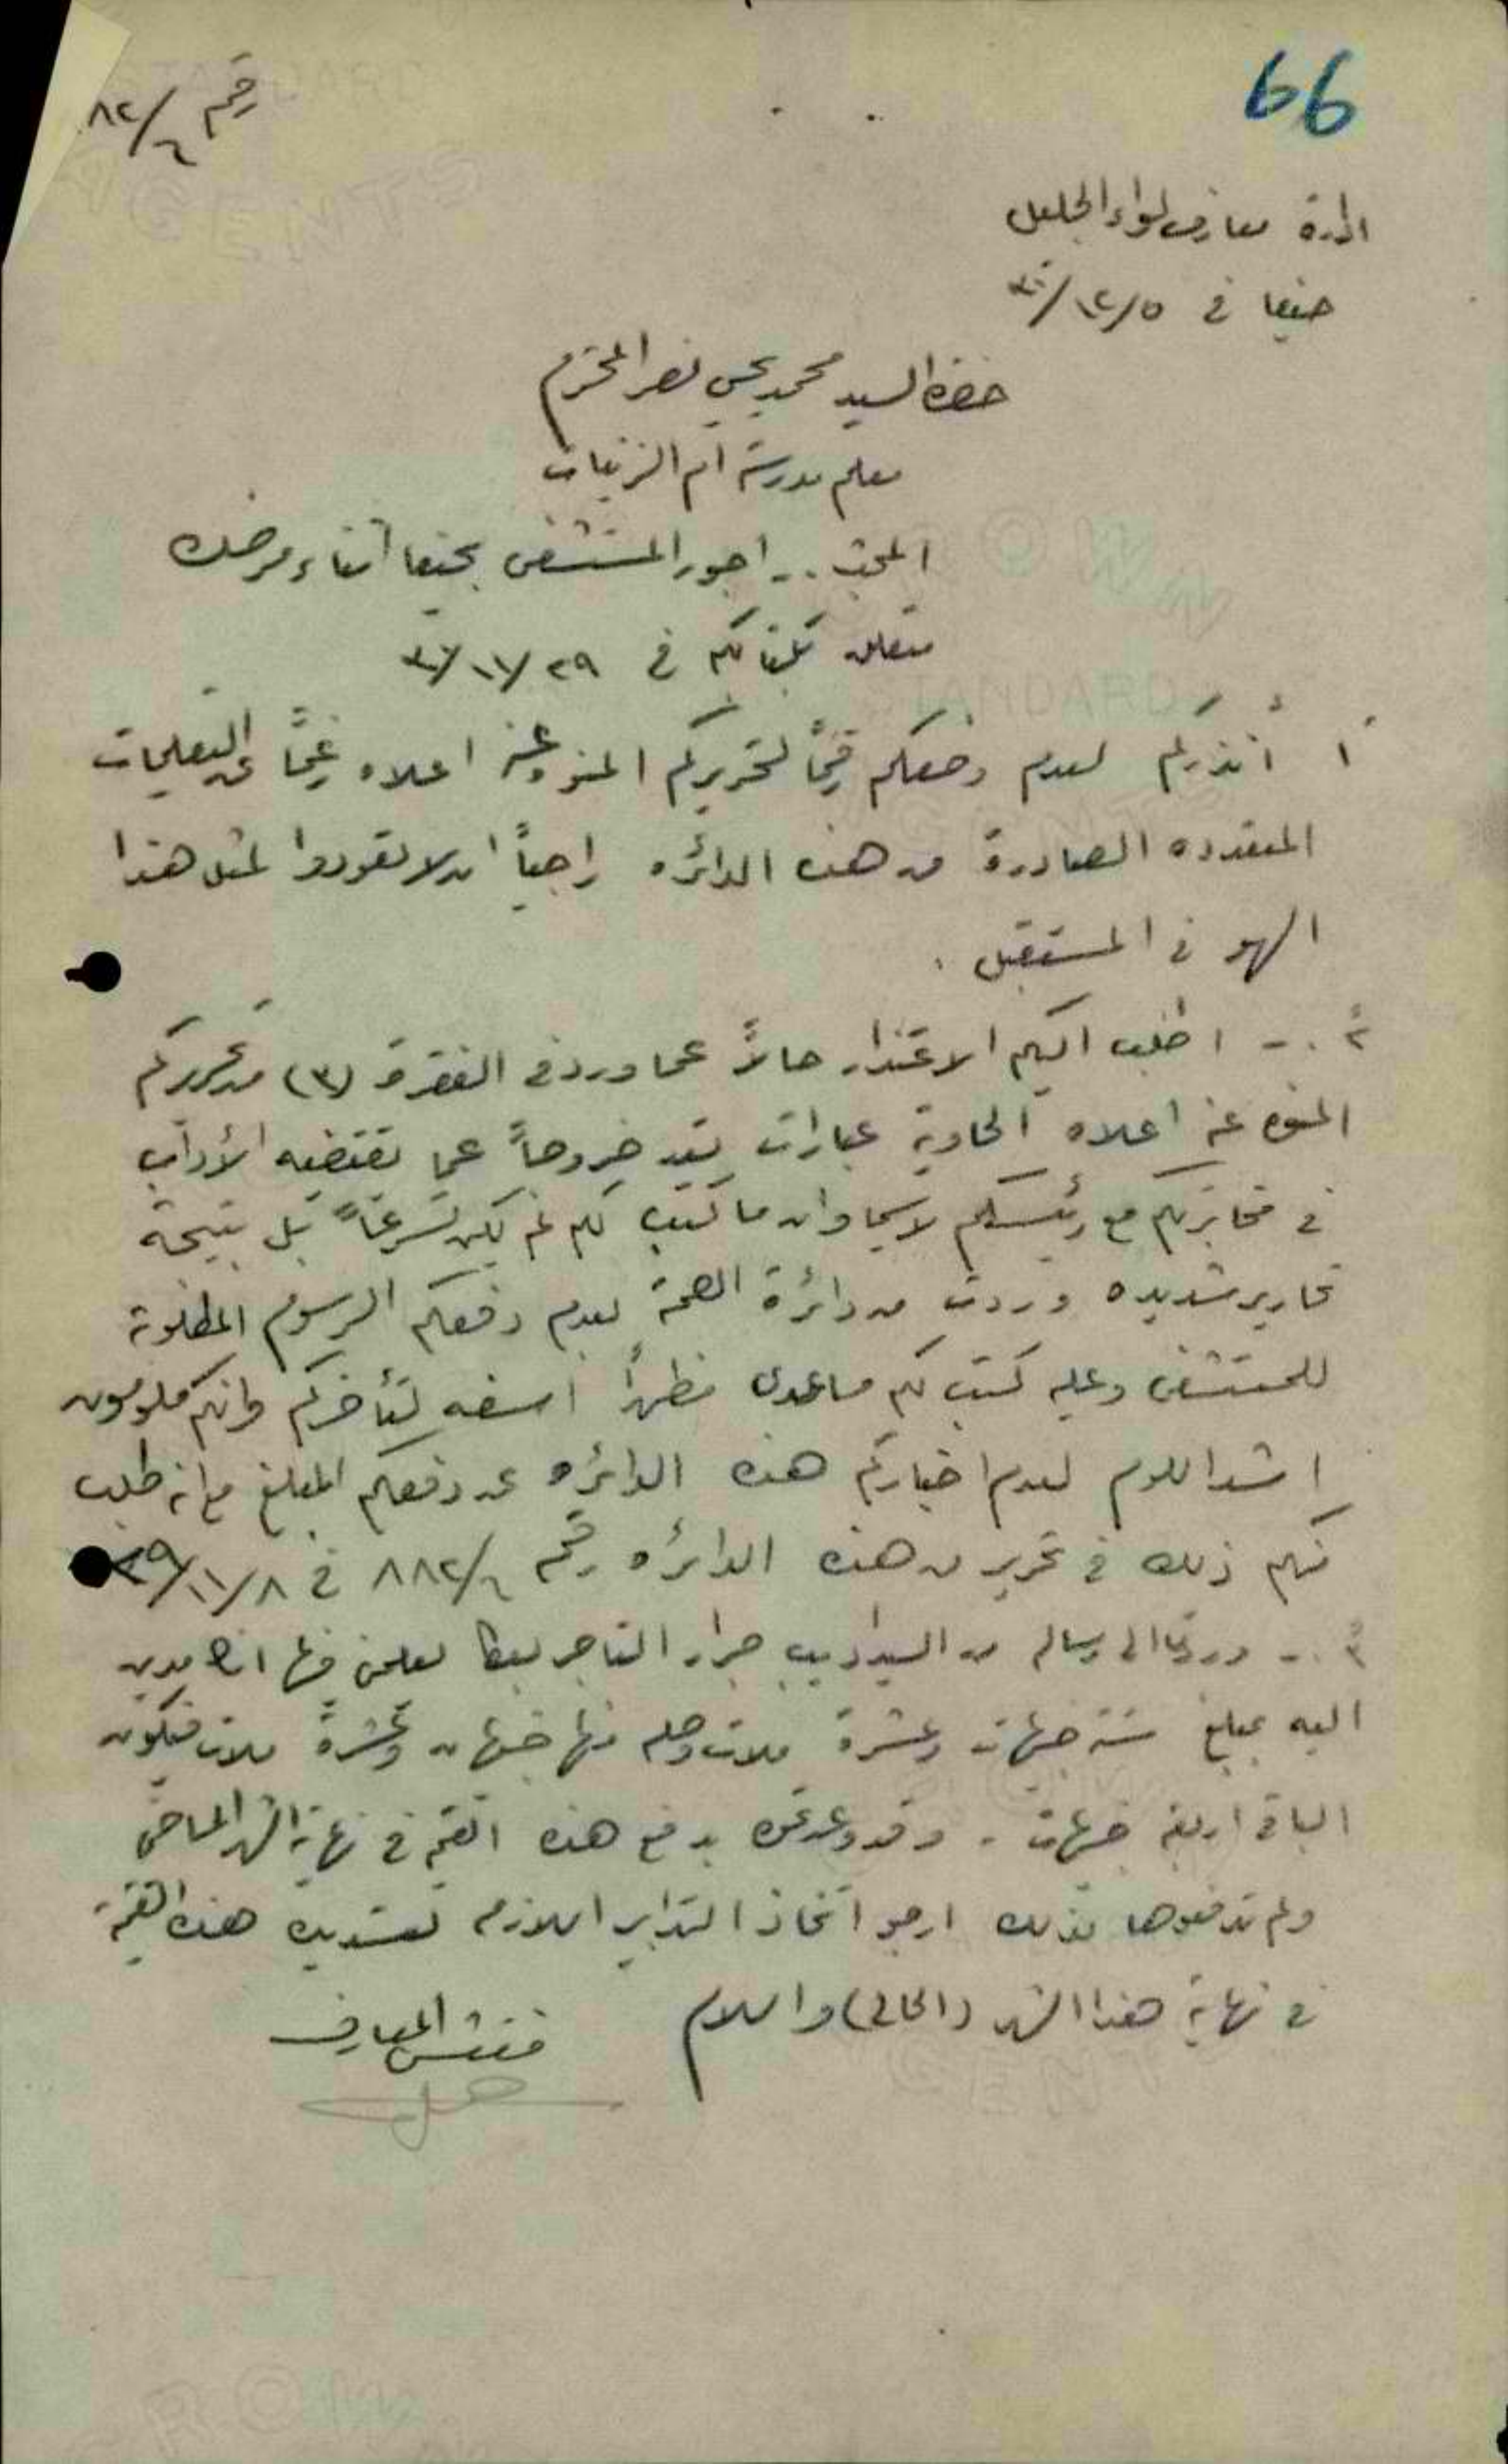 66
رقم ٦/٨٢
ادارة معارف لواء الجليل
حيفا في ٥/١٢/٣٠
حضرة السيد محمد يحيى نصر المحترم
معلم مدرسة ام الزينات
المبحث .. اجور المستشفى بحيفا اثناء مرضك
متعلق بكتابكم في ٢٩/١١/٣٠
١ أنذركم لعدم وضعكم رقمًا لتحريركم المنوه عنه اعلاه رغمًا عن التعليمات
المتعدده الصادرة من هذه الدائره راجياً ان لا تعودوا لمثل هذا
السهو في المستقبل .
٢ .- اطلب اليكم الاعتذار حالاً عما ورد في الفقرة (٣) من تحريركم
المنوه عنه اعلاه الحاوية عبارات تعد خروجاً عما تقتضيه الأداب
في مخابرتكم مع رئيسكم لاسيما وان ما كتب لكم لم يكن تسرعاً بل نتيجة
تحارير شديده وردت من دائرة الصحة لعدم دفعكم الرسوم المطلوبة
للمستشفى وعليه كتب لكم مساعدي مظهراً اسفه لتأخركم وانكم ملومون
اشد اللوم لعدم اخباركم هذه الدائره عن دفعكم المبلغ مع انه طلب
منكم ذلك في تحرير من هذه الدائره رقم ٦/٨٨٢ في ٨/١١/٢٩
٣ .- وردتنا الى رسالة من السيد اديب جرار التاجر يعلمني فيها انك مدين
اليه بمبلغ ستة جنيهات وعشرة ملات وصله منها جنيهان وعشرة ملات فيكون
الباقي اربعة جنيهات . وقد وعدتموه بدفع هذه القيمة في نهاية الشهر الماضي
ولم تدفعوها لذلك ارجو اتخاذ التدابير اللازمه لتسديد هذه القيمة
في نهاية هذا الشهر (الحالي) والسلام
مفتش المعارف